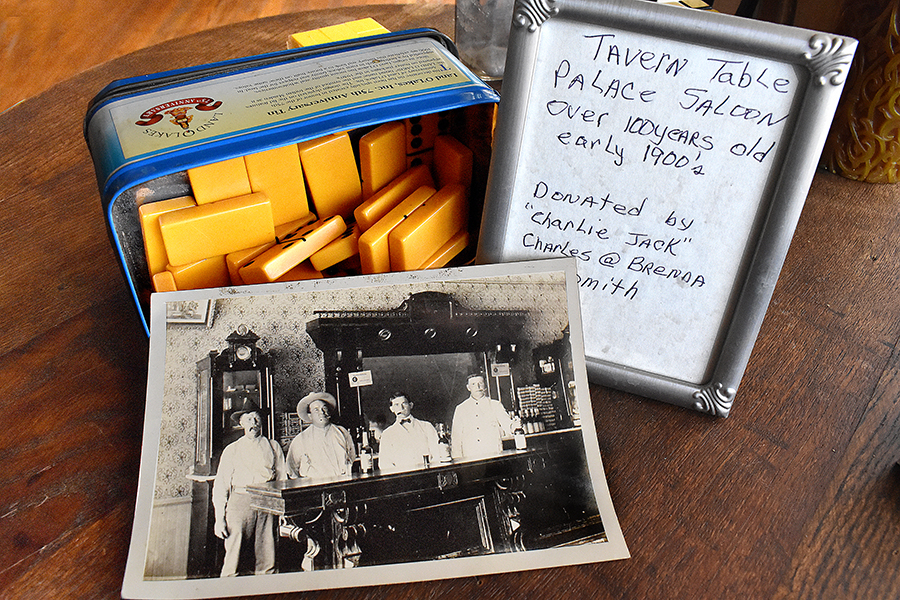 Land O'Lakes, Inc. 75th Anniversary Tin
LAND O LAKES
ANNIVERSARY
TAVERN Table
PALACE SALOON
OVER 100 YEARS old
early 1900's
DONATED by
"Charlie JACK"
CHARLES @ BRENNA
Smith